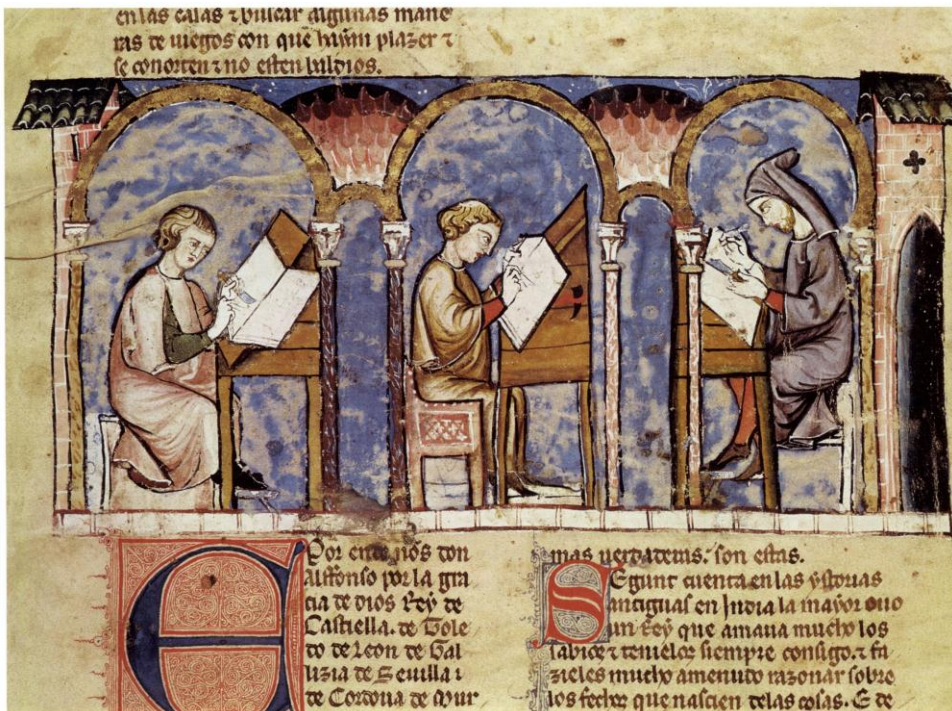 en las casas ⁊ buscar algunas mane
ras de iuegos con que hayan plazer ⁊
se conorten ⁊ no esten baldios.
E Por ende nos don
Alffonso por la gra
cia de dios Rey de
Castiella. de Tole
do de Leon de Gal
lizia de Seuilla ⁊
de Cordoua de Mur
mas uerdaderas. son estas.
SEgunt cuenta en las ystorias
antiguas en India la mayor ouo
un Rey que amaua mucho los
sabios ⁊ tenielos siempre consigo. ⁊ fa
zieles mucho amenudo razonar sobre
los fechos que nascien delas cosas. E de